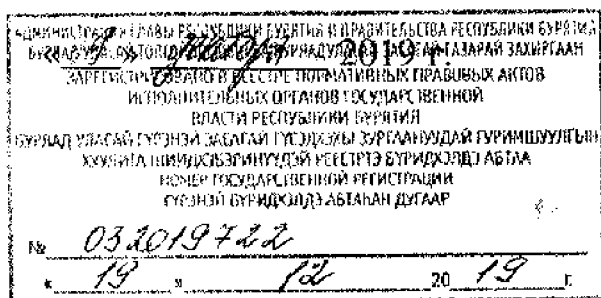 АДМИНИСТРАЦИЯ ГЛАВЫ РЕСПУБЛИКИ БУРЯТИЯ И ПРАВИТЕЛЬСТВА РЕСПУБЛИКИ БУРЯТИЯ
« 19 » 2019 г. ЗАХИРГААН
ЗАРЕГИСТРИРОВАНО В РЕЕСТРЕ НОРМАТИВНЫХ ПРАВОВЫХ АКТОВ
ИСПОЛНИТЕЛЬНЫХ ОРГАНОВ ГОСУДАРСТВЕННОЙ
ВЛАСТИ РЕСПУБЛИКИ БУРЯТИЯ
БУРЯАД УЛАСАЙ ГҮРЭНЭЙ ЗАСАГАЙ
РЕЕСТРТЭ БҮРИДХЭЛДЭ АБТАА
НОМЕР ГОСУДАРСТВЕННОЙ РЕГИСТРАЦИИ
ГҮРЭНЭЙ БҮРИДХЭЛДЭ АБТАҺАН ДУГААР
№ 032019722
« 19 » 12 20 19 г.